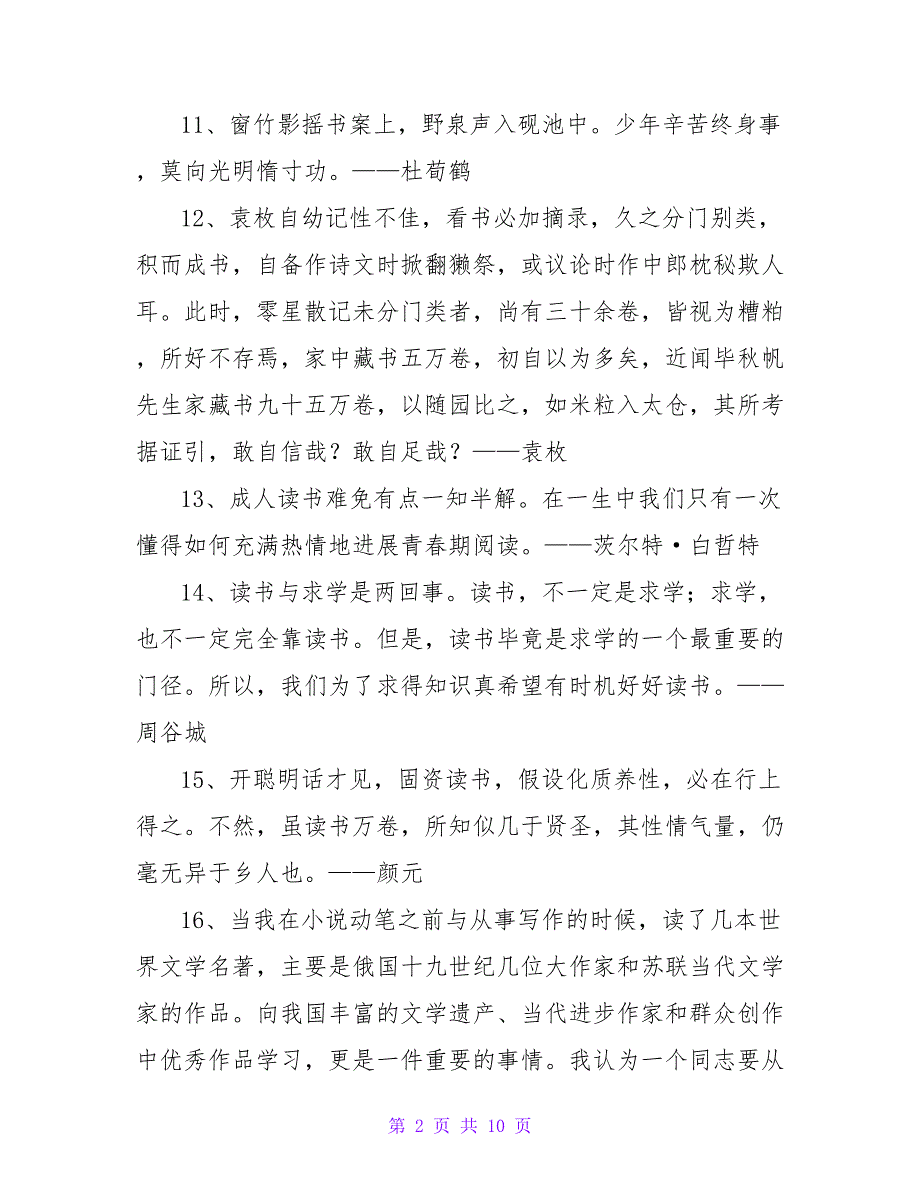 11、窗竹影摇书案上，野泉声入砚池中。少年辛苦终身事
，莫向光明惰寸功。——杜荀鹤
12、袁枚自幼记性不佳，看书必加摘录，久之分门别类，
积而成书，自备作诗文时掀翻獭祭，或议论时作中郎枕秘欺人
耳。此时，零星散记未分门类者，尚有三十余卷，皆视为糟粕
，所好不存焉，家中藏书五万卷，初自以为多矣，近闻毕秋帆
先生家藏书九十五万卷，以随园比之，如米粒入太仓，其所考
据证引，敢自信哉？敢自足哉？——袁枚
13、成人读书难免有点一知半解。在一生中我们只有一次
懂得如何充满热情地进展青春期阅读。——茨尔特·白哲特
14、读书与求学是两回事。读书，不一定是求学；求学，
也不一定完全靠读书。但是，读书毕竟是求学的一个最重要的
门径。所以，我们为了求得知识真希望有时机好好读书。——
周谷城
15、开聪明话才见，固资读书，假设化质养性，必在行上
得之。不然，虽读书万卷，所知似几于贤圣，其性情气量，仍
毫无异于乡人也。——颜元
16、当我在小说动笔之前与从事写作的时候，读了几本世
界文学名著，主要是俄国十九世纪几位大作家和苏联当代文学
家的作品。向我国丰富的文学遗产、当代进步作家和群众创作
中优秀作品学习，更是一件重要的事情。我认为一个同志要从
第 2 页 共 10 页